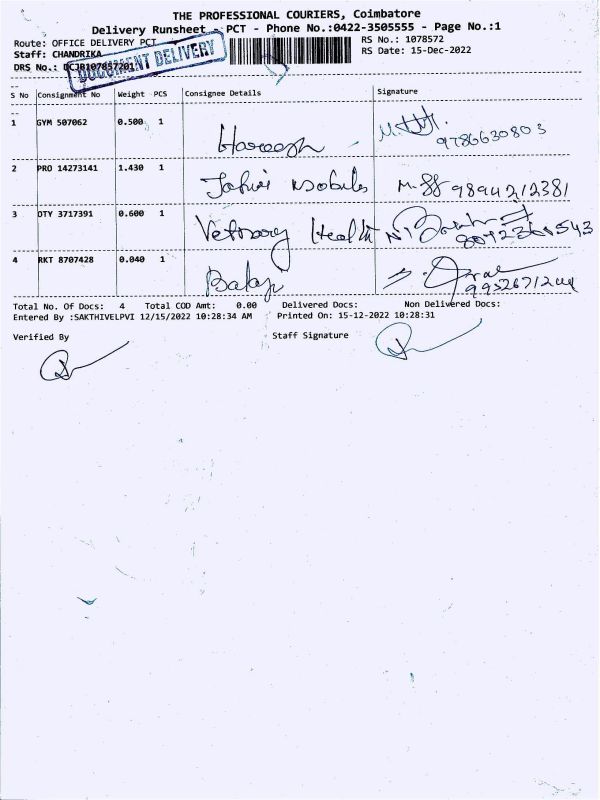 THE PROFESSIONAL COURIERS, Coimbatore
Delivery Runsheet - PCT - Phone No.:0422-3505555 - Page No.:1
Route: OFFICE DELIVERY PCT
RS No.: 1078572
Staff: CHANDRIKA
RS Date: 15-Dec-2022
DRS No.: DCJB107857201
DOCUMENT DELIVERY
S No Consignment No Weight PCS Consignee Details Signature
1 GYM 507062 0.500 1 Hareesh 9786630803
2 PRO 14273141 1.430 1 Mobiles 9894212381
3 OTY 3717391 0.600 1 Health
4 RKT 8707428 0.040 1 Balaji
Total No. Of Docs: 4 Total COD Amt: 0.00 Delivered Docs: Non Delivered Docs:
Entered By :SAKTHIVELPVI 12/15/2022 10:28:34 AM Printed On: 15-12-2022 10:28:31
Verified By Staff Signature